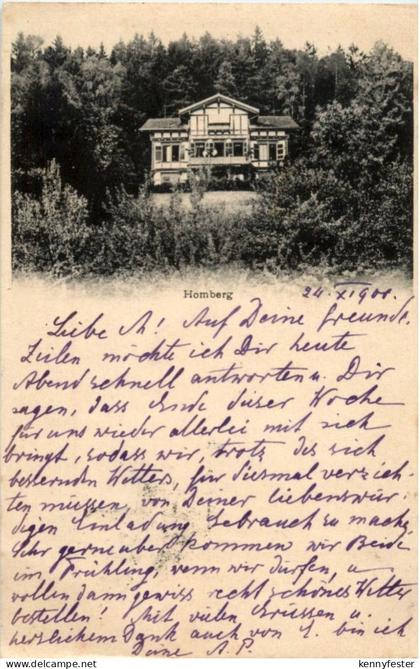 Homberg
24. XI 900.
Liebe A! Auf Deine freundl.
Zeilen möchte ich Dir heute
Abend schnell antworten u. Dir
sagen, dass Ende dieser Woche
für uns wieder allerlei mit sich
bringt, sodass wir, trotz des sich
bessernden Wetters, für diesmal verzich-
ten müssen, von Deiner liebenswür
digen Einladung Gebrauch zu mache
Sehr gerne aber kommen wir Beide
im Frühling, wenn wir dürfen, u.
wollen dann gewiss recht schönes Wetter
bestellen! Mit vielen Grüssen u.
herzlichem Dank auch von S. bin ich
Deine A. P.
www.delcampe.net
kennyfester